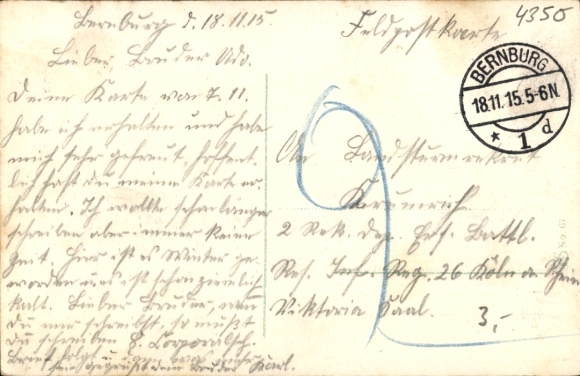 4350
Bernburg d. 18.11.15.
Feldpostkarte
Lieber Bruder Udo.
BERNBURG
18.11.15.5-6N.
* 1 d
Deine Karte vom 7.11.
habe ich erhalten und habe
mich sehr gefreut, hoffent-
lich hast du meine Karte er-
halten. Ich wollte schon länger
schreiben aber immer keine
Zeit. Hier ist es Winter ge-
worden u. es ist schon ziemlich
kalt. Lieber Bruder, wenn
du mir schreibst, so mußt
du schreiben Corporalsch.
Brief folgt u.
gegrüßt dein Bruder Karl.
An Landsturmrekrut
2 Rek. Dep. Ers. Battl.
Res. Inf. Reg. 26 Köln a. Rhein
Viktoria Saal.
9
3,-